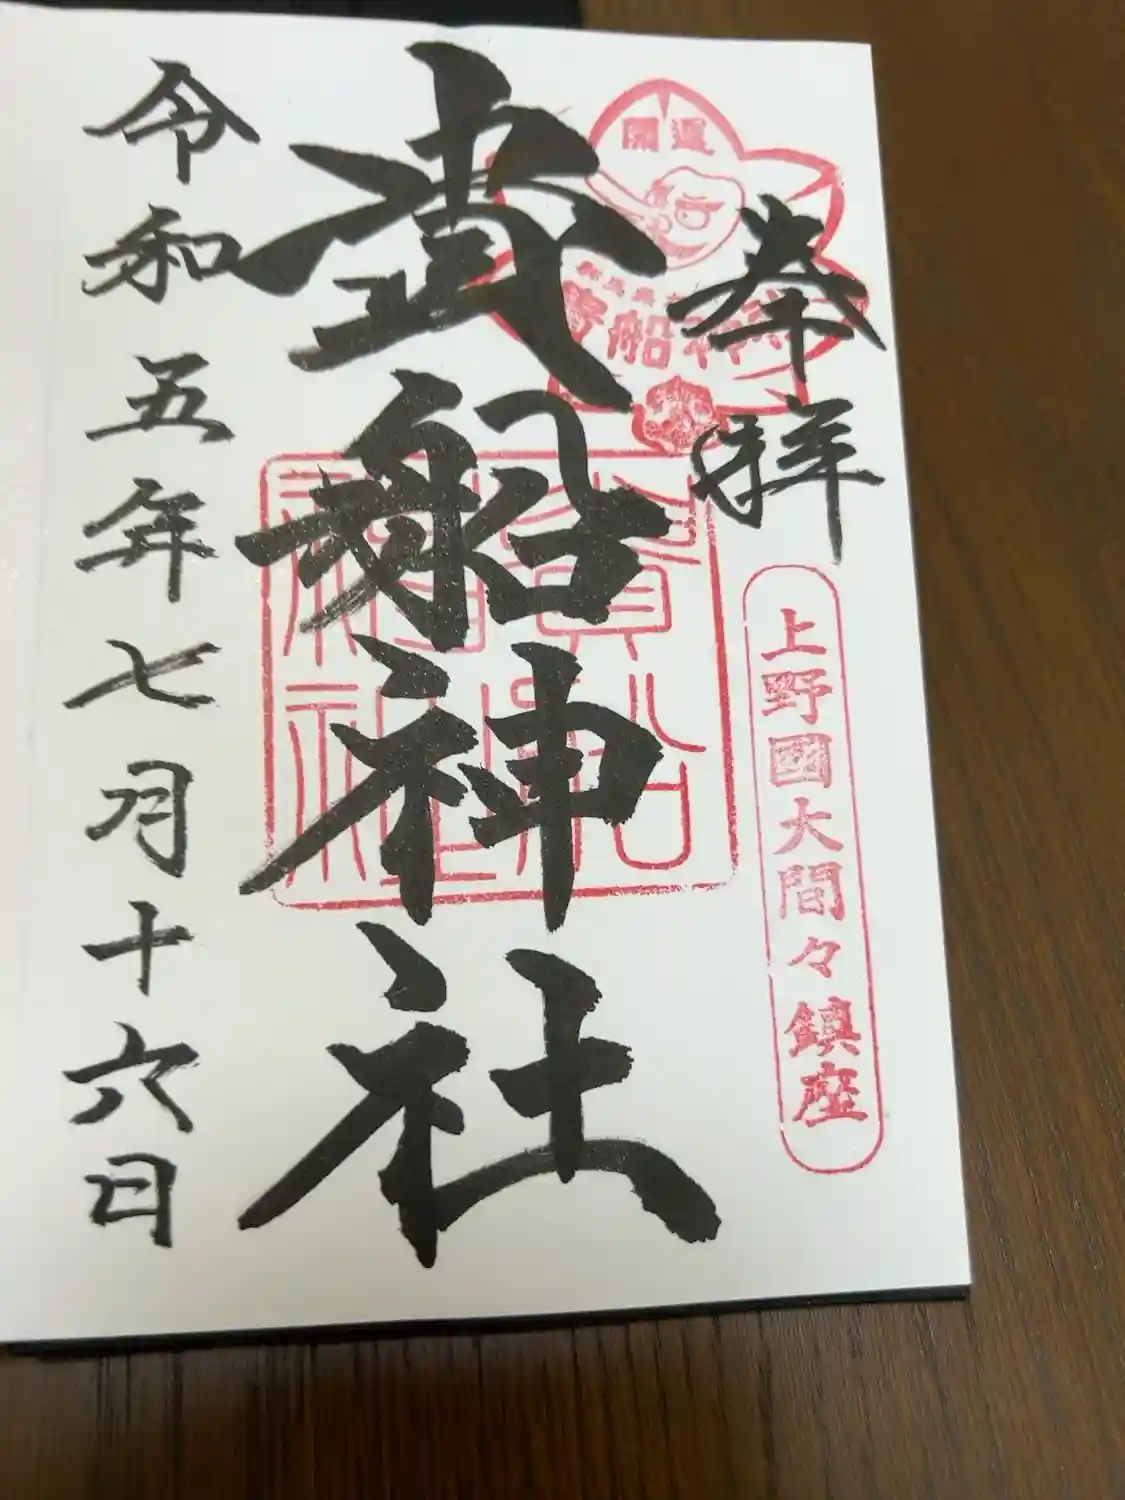 奉拝
開運
貴船神社
上野國大間々鎮座
貴船神社
貴船神社
令和五年七月十六日